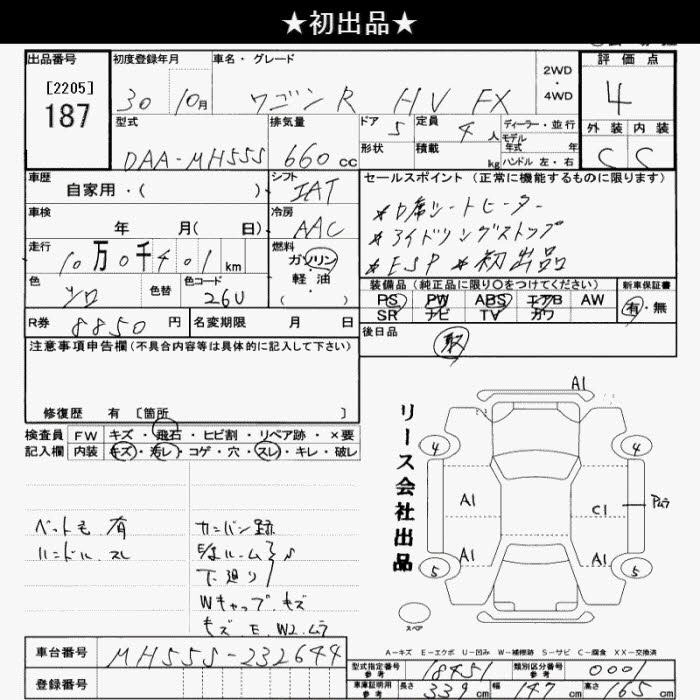 ★初出品★
出品番号 初度登録年月 車名・グレード 評価点
[2205]
187
30 10月 ワゴンR HV FX 2WD・4WD 4
型式 排気量 ドア 5 定員 4人 ディーラー・並行 外装 内装
DAA-MH55S 660cc 形状 積載 kg モデル年式 年 ハンドル 左・右 C C
車歴 シフト セールスポイント(正常に機能するものに限ります)
自家用・( ) IAT
車検 冷房 *D席シートヒーター
年 月( 日) AAC *アイドリングストップ
走行 燃料 *ESP *初出品
10万0千401km ガソリン・軽油・( )
色 色替 色コード 装備品(純正品に限り○をつけてください) 新車保証書
シロ 26U PS PW ABS エアB AW 有・無
SR ナビ TV カワ
R券 8850円 名変期限 月 日 後日品
取
注意事項申告欄(不具合内容等は具体的に記入して下さい)
修復歴 有 [箇所 ]
検査員 FW キズ・飛石・ヒビ割・リペア跡・×要
記入欄 内装 キズ・汚レ・コゲ・穴・スレ・キレ・破レ
ペット毛 有 カンバン跡
ハンドル スレ
下廻り
Wキャップ キズ
キズ E W2 ムラ
リース会社出品
A1
4 4
A1 C1 Pムラ
A1 A1
5 5
スペア
A-キズ E-エクボ U-凹み W-補修跡 S-サビ C-腐食 XX-交換済
車台番号 MH55S-232644
登録番号
型式指定番号 参考 18451 類別区分番号 参考 0001
車庫証明用 参考 長さ 339cm 幅 147cm 高さ 165cm